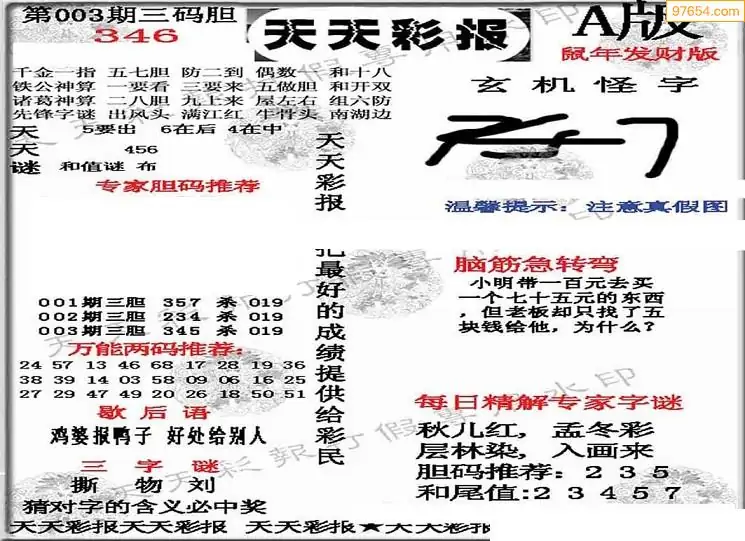 97654.com
第003期三码胆
346
天天彩报
A版
鼠年发财版
千金一指 五七胆 防二到 偶数 和十八
铁公神算 一要看 三要来 五做胆 和开双
诸葛神算 二八胆 九上来 屋左右 组六防
先锋字谜 出风头 满江红 牛骨头 南湖边
天天谜
5要出 6在后 4在中
456
和值谜 布
专家胆码推荐
001期三胆 357 杀 019
002期三胆 234 杀 019
003期三胆 345 杀 019
万能两码推荐:
24 57 13 46 68 17 28 19 36
38 39 14 03 58 09 06 16 25
27 29 47 49 20 26 18 50 51
歇后语
鸡婆报鸭子 好处给别人
三字谜
撕 物 刘
猜对字的含义必中奖
天天彩报
把最好的成绩提供给彩民
玄机怪字
温馨提示:注意真假图
脑筋急转弯
小明带一百元去买
一个七十五元的东西
,但老板却只找了五
块钱给他,为什么?
每日精解专家字谜
秋儿红,孟冬彩
层林染,入画来
胆码推荐:235
和尾值:23457
天天彩报天天彩报 天天彩报★天天彩报